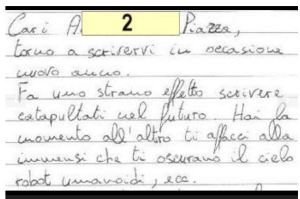 Cari A 2 Piazza,
torno a scrivervi in occasione
nuovo anno.
Fa uno strano effetto scrivere
catapultati nel futuro. Hai la
momento all'altro ti affacci alla
immensi che ti oscurano il cielo
robot umanoidi, ecc.